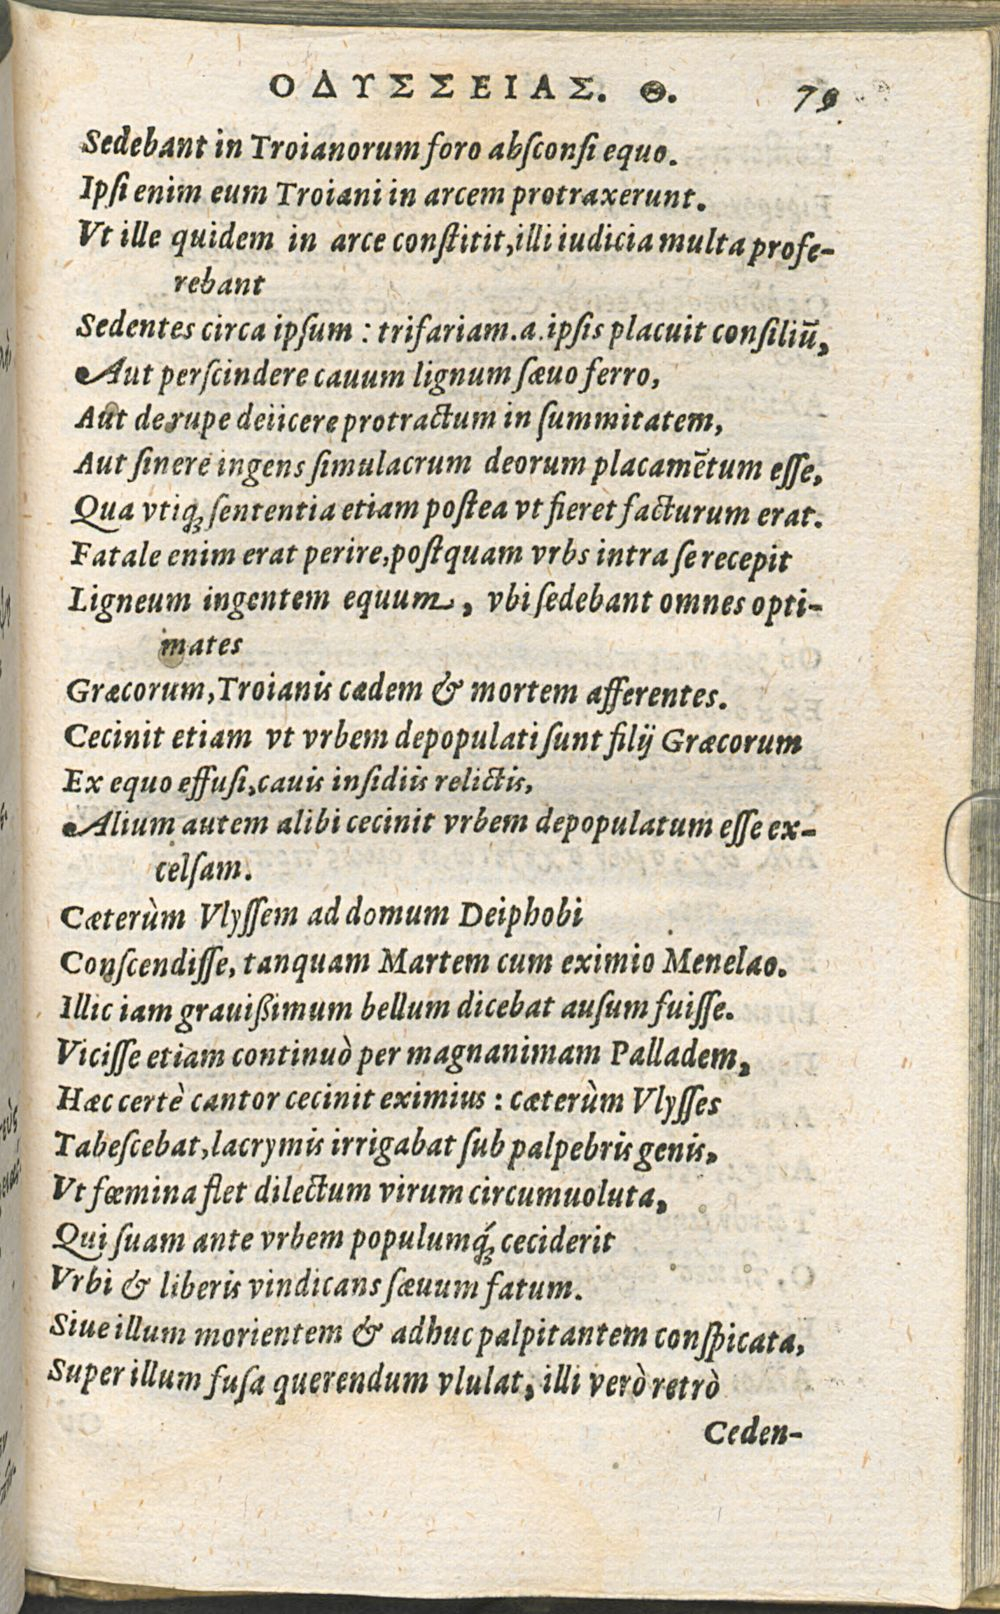 ΟΔΥΣΣΕΙΑΣ. Θ. 79
Sedebant in Troianorum foro abſconſi equo.
Ipſi enim eum Troiani in arcem protraxerunt.
Vt ille quidem in arce conſtitit, illi iudicia multa profe-
rebant
Sedentes circa ipſum : trifariam .a. ipſis placuit conſiliū,
Aut perſcindere cauum lignum ſæuo ferro,
Aut de rupe deiicere protractum in ſummitatem,
Aut ſinere ingens ſimulacrum deorum placamētum eſſe,
Qua vtiq; ſententia etiam poſtea vt fieret facturum erat.
Fatale enim erat perire, poſtquam vrbs intra ſe recepit
Ligneum ingentem equum, vbi ſedebant omnes opti-
mates
Græcorum, Troianis cædem & mortem afferentes.
Cecinit etiam vt vrbem depopulati ſunt filij Græcorum
Ex equo effuſi, cauis inſidiis relictis,
Alium autem alibi cecinit vrbem depopulatum eſſe ex-
celſam.
Cæterùm Vlyſſem ad domum Deiphobi
Conſcendiſſe, tanquam Martem cum eximio Menelao.
Illic iam grauißimum bellum dicebat auſum fuiſſe.
Viciſſe etiam continuò per magnanimam Palladem,
Hæc certè cantor cecinit eximius : cæterùm Vlyſſes
Tabeſcebat, lacrymis irrigabat ſub palpebris genis,
Vt fœmina flet dilectum virum circumuoluta,
Qui ſuam ante vrbem populumq́; ceciderit
Vrbi & liberis vindicans ſæuum fatum.
Siue illum morientem & adhuc palpitantem conſpicata,
Super illum fuſa querendum vlulat, illi verò retrò
Ceden-